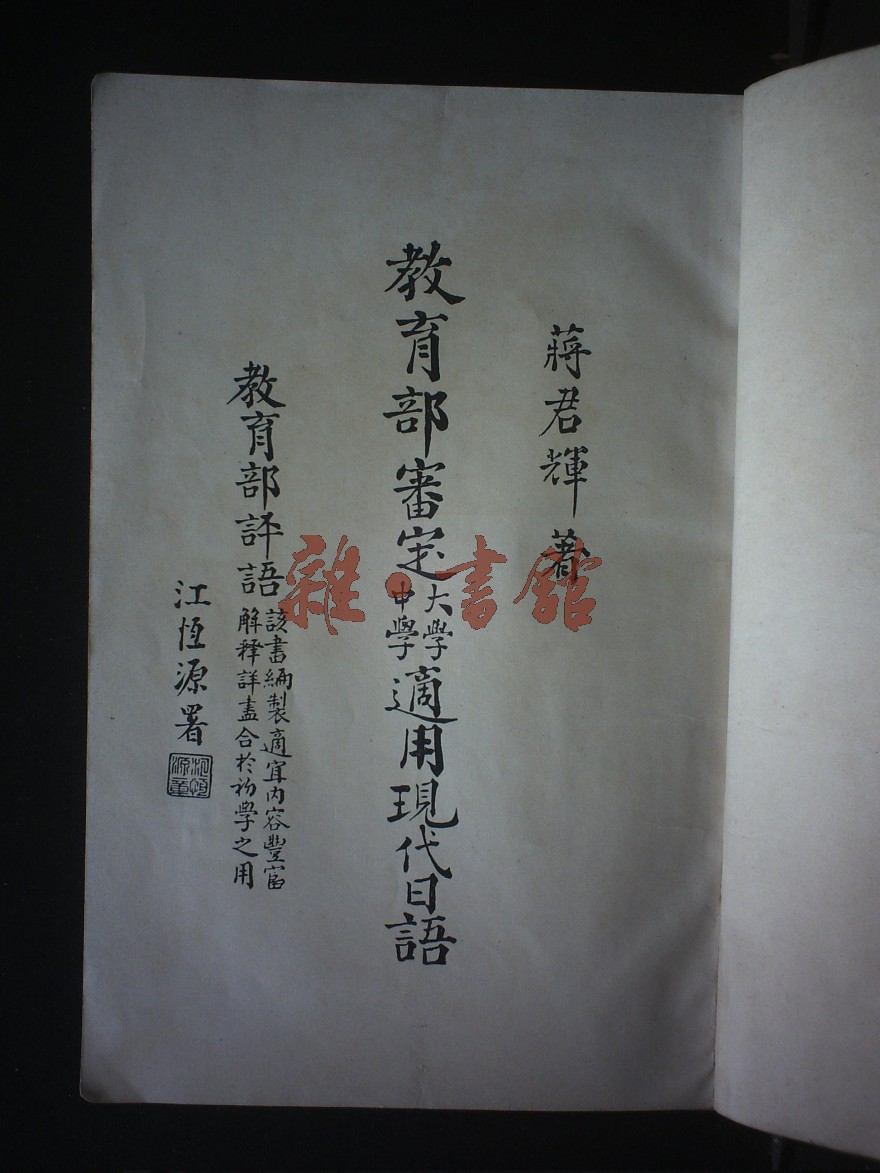 蔣君輝著
教育部審定大学中學適用現代日語
教育部評語該書編製適宜內容豐富
解释詳盡合於初學之用
江恆源署
江恆源章
雜·書館